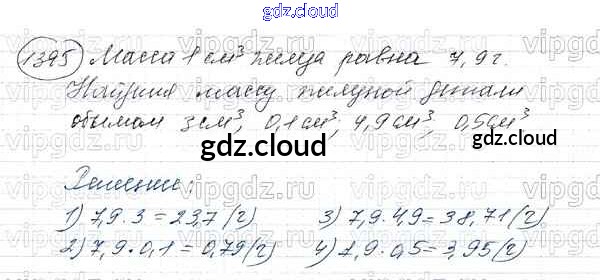 gdz.cloud
1395 Масса 1 см³ железа равна 7,9 г.
Найдите массу железной детали
объёмом 3 см³, 0,1 см³, 4,9 см³, 0,5 см³
gdz.cloud
gdz.cloud
Решение:
1) 7,9 · 3 = 23,7 (г) 3) 7,9 · 4,9 = 38,71 (г)
2) 7,9 · 0,1 = 0,79 (г) 4) 7,9 · 0,5 = 3,95 (г)